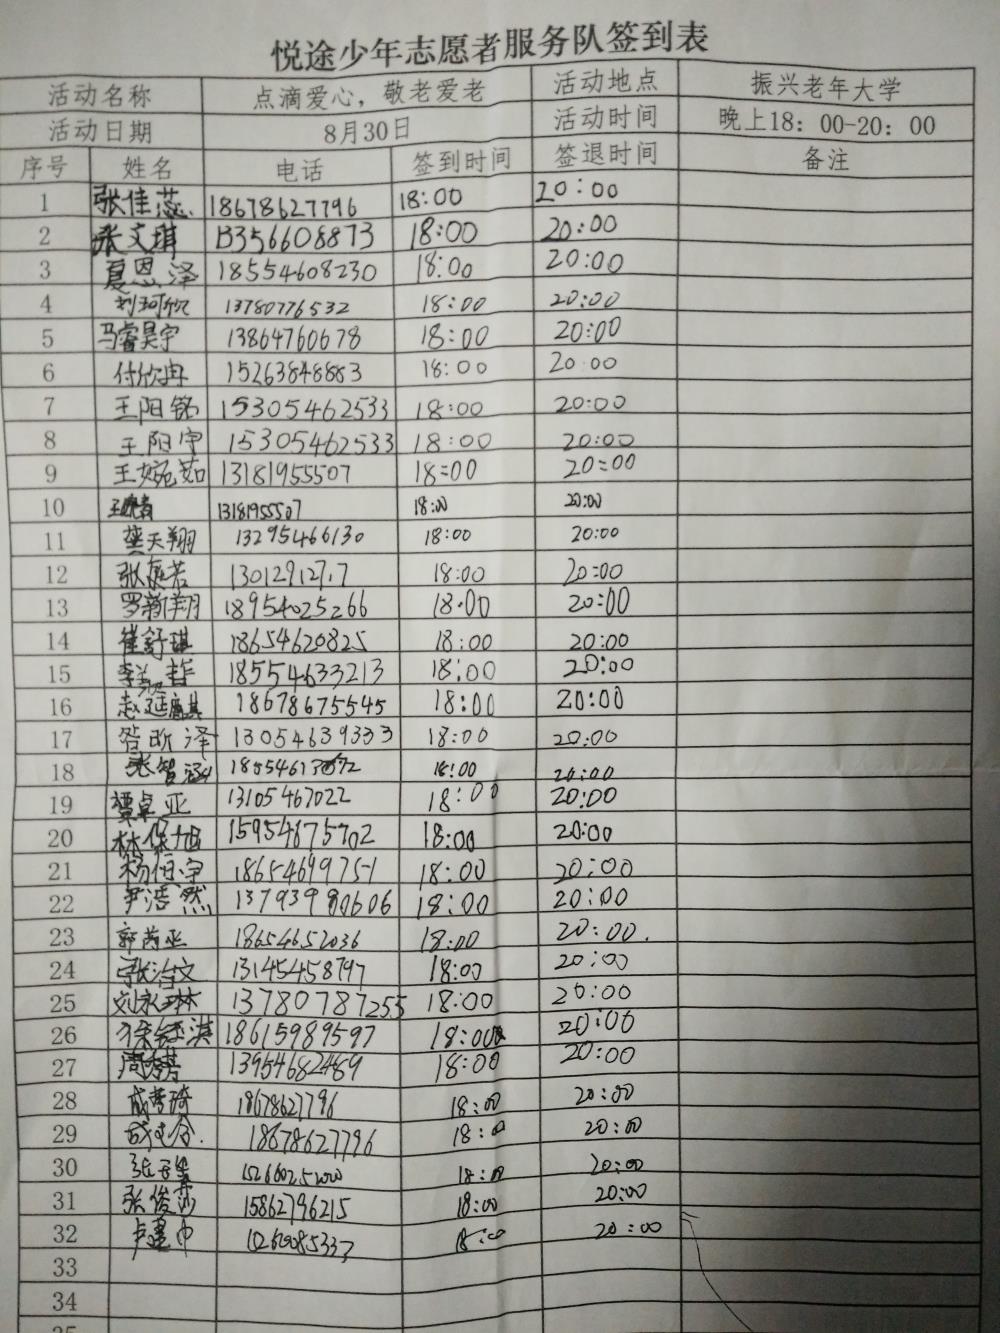 悦途少年志愿者服务队签到表
活动名称 点滴爱心，敬老爱老 活动地点 振兴老年大学
活动日期 8月30日 活动时间 晚上18：00-20：00
序号 姓名 电话 签到时间 签退时间 备注
1 张佳蕊 18678627796 18:00 20:00
2 张文琪 13356608873 18:00 20:00
3 夏恩泽 18554608230 18:00 20:00
4 刘珂欣 13780776532 18:00 20:00
5 马睿昊宇 13864760678 18:00 20:00
6 付欣冉 15263848883 18:00 20:00
7 王阳铭 15305462533 18:00 20:00
8 王阳宇 15305462533 18:00 20:00
9 王婉茹 13181955507 18:00 20:00
10 13181955507 18:00 20:00
11 龚天翔 13295466130 18:00 20:00
12 18:00 20:00
13 罗新翔 18954025266 18:00 20:00
14 崔舒琪 18654620825 18:00 20:00
15 18554633213 18:00 20:00
16 赵延麒 18678675545 18:00 20:00
17 昝昕泽 13054639333 18:00 20:00
18 张智涵 18:00 20:00
19 卓亚 13105467022 18:00 20:00
20 林保旭 15954675702 18:00 20:00
21 18654699751 18:00 20:00
22 尹浩然 13793980606 18:00 20:00
23 郭芮亚 18654652036 18:00 20:00.
24 张洽文 13145458797 18:00 20:00
25 刘永琳 13780787255 18:00 20:00
26 徐钰淇 18615989597 18:00 20:00
27 13954682489 18:00 20:00
28 18678627796 18:00 20:00
29 18678627796 18:00 20:00
30 18:00 20:00
31 张俊莎 15862796215 18:00 20:00
32 卢建巾 18:00 20:00
33
34